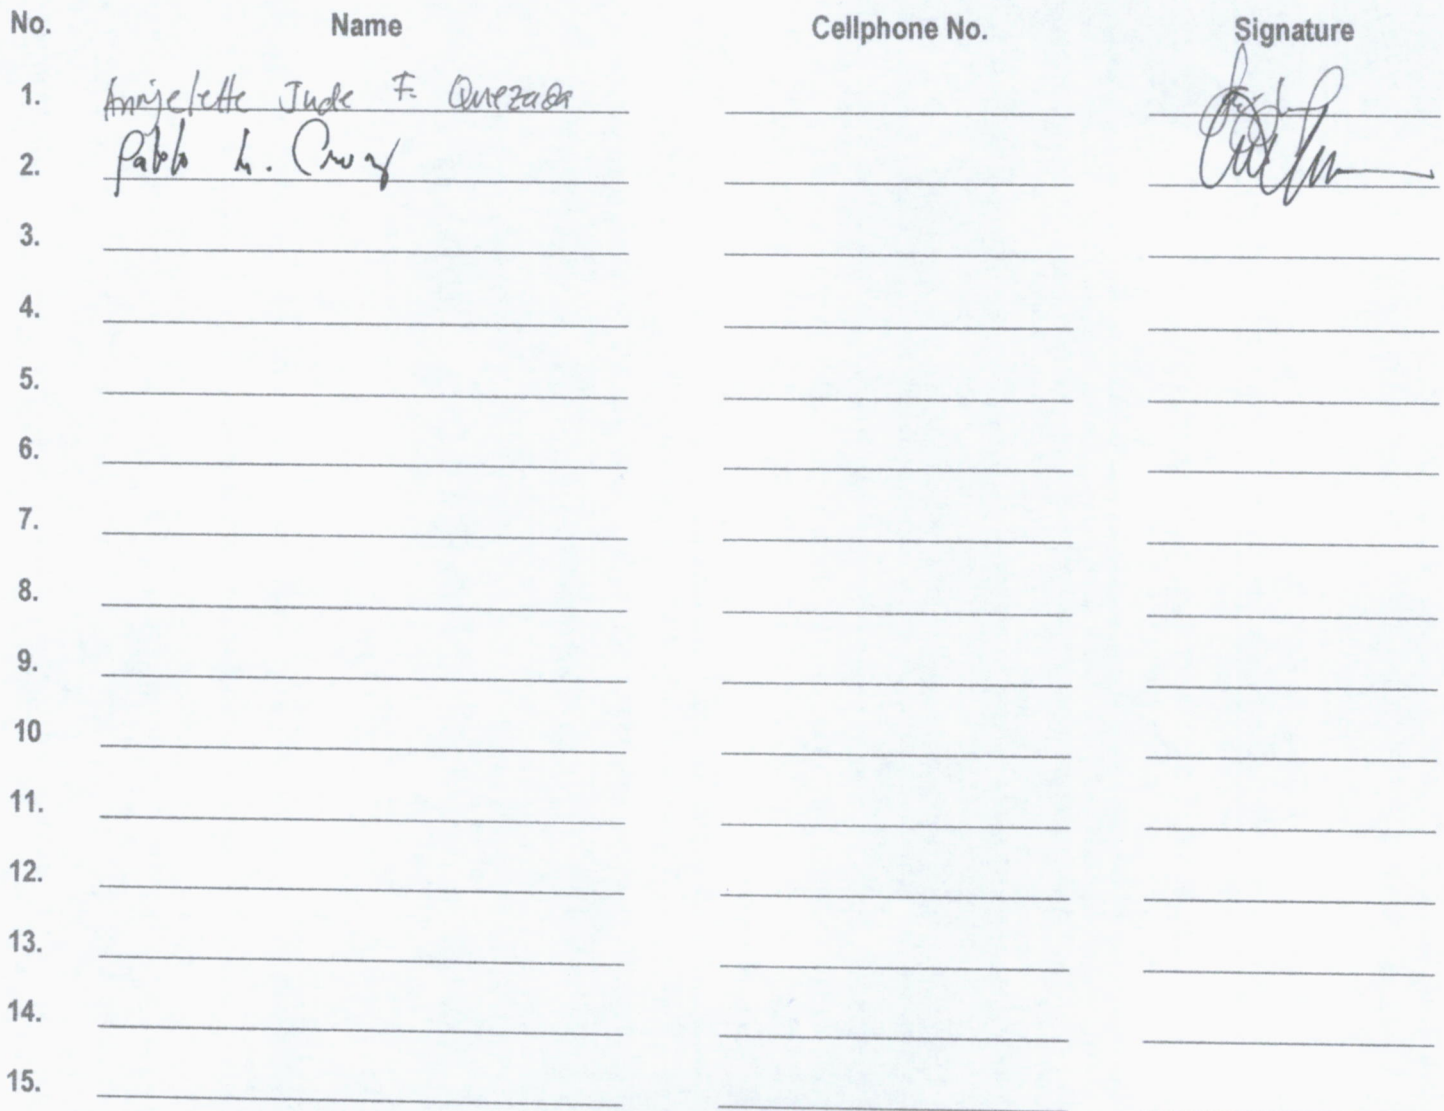 No. Name Cellphone No. Signature
1. Annjelette Jude F. Quezada
2. Pablo M. Cruz
3.
4.
5.
6.
7.
8.
9.
10
11.
12.
13.
14.
15.